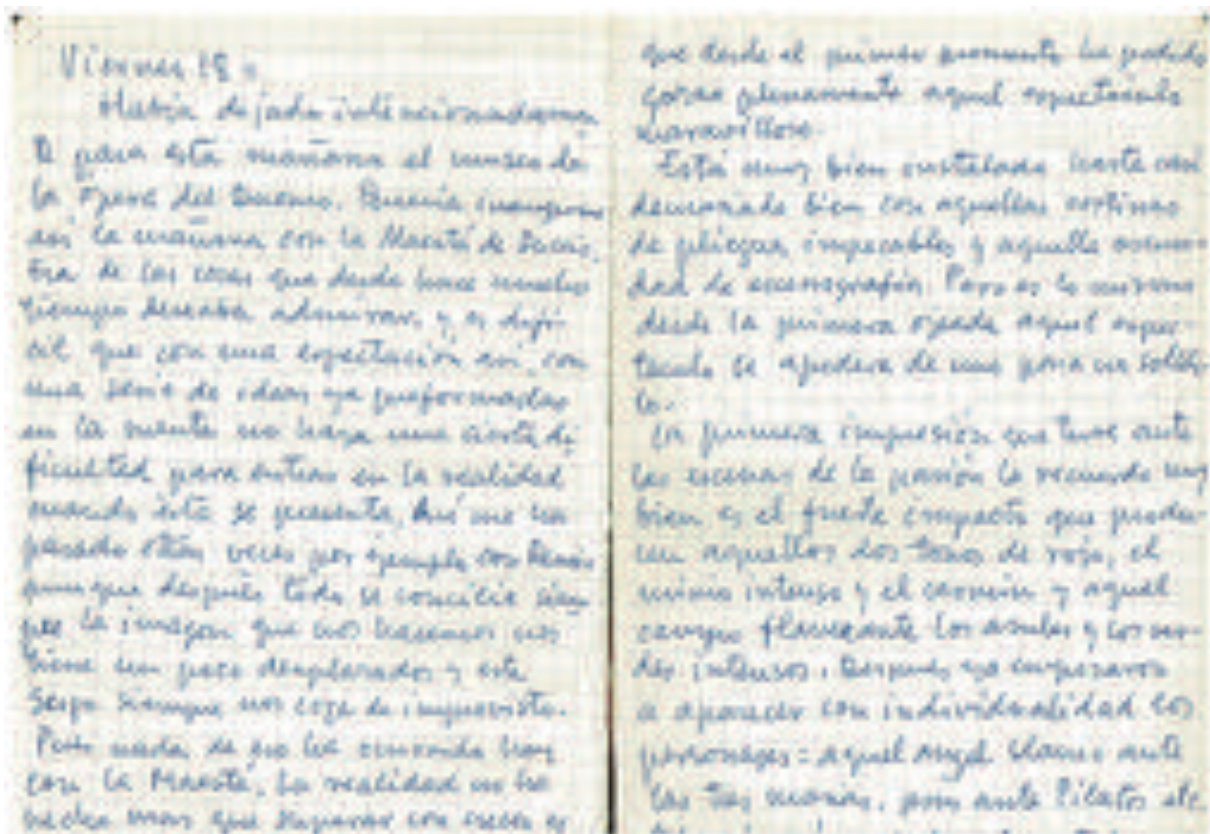 Viernes 18.
Había dejado intencionadamen
te para esta mañana el museo de
la Opera del Duomo. Quería inaugurar
así la mañana con la Maestá de Duccio,
otra de las cosas que desde hace mucho
tiempo deseaba admirar, y es difí-
cil que con una expectación así, con
una serie de ideas ya preformadas
en la mente no haya una cierta di
ficultad para entrar en la realidad
cuando ésta se presenta. Así me ha
pasado otras veces por ejemplo con
aunque después todo se concilie siem
pre la imagen que nos hacemos nos
tiene un poco desplazados y este
sesgo siempre nos coge de improviso.
Pero nada de eso ha ocurrido hoy
con la Maestá. La realidad no ha
hecho mas que superar con creces
que desde el primer momento he podido
gozar plenamente aquel espectáculo
maravilloso.
Está muy bien instalado hasta casi
demasiado bien con aquellas cortinas
de pliegues impecables y aquella oscuri-
dad de escenografía. Pero es lo mismo
desde la primera ojeada aquel espec-
táculo se apodera de uno para no soltar-
lo.
La primera impresión que tuve ante
las escenas de la pasión la recuerdo muy
bien es el fuerte impacto que produ-
cen aquellos dos tonos de rojo, el
minio intenso y el carmín y aquel
campo flameante los azules y los ver-
des intensos. Después ya empezaron
a aparecer con individualidad los
personajes: aquel angel blanco ante
las tres marías, ante Pilatos